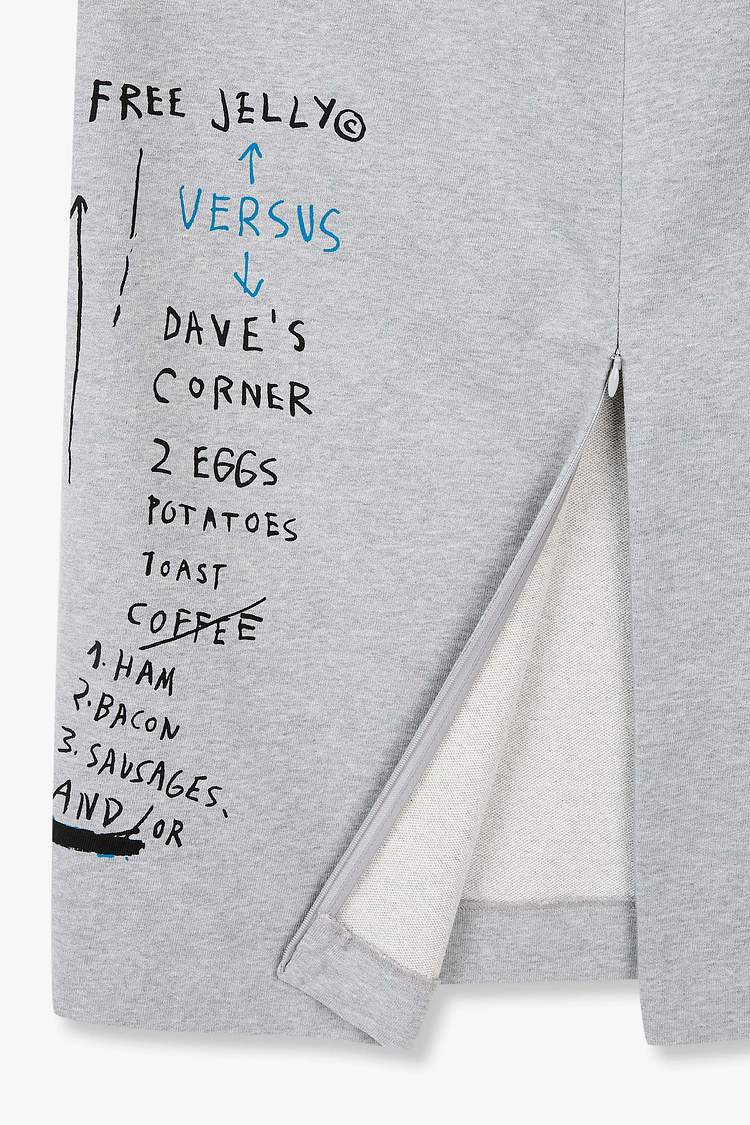 FREE JELLY©
VERSUS
DAVE'S
CORNER
2 EGGS
POTATOES
TOAST
COFFEE
1. HAM
2. BACON
3. SAUSAGES,
AND/OR